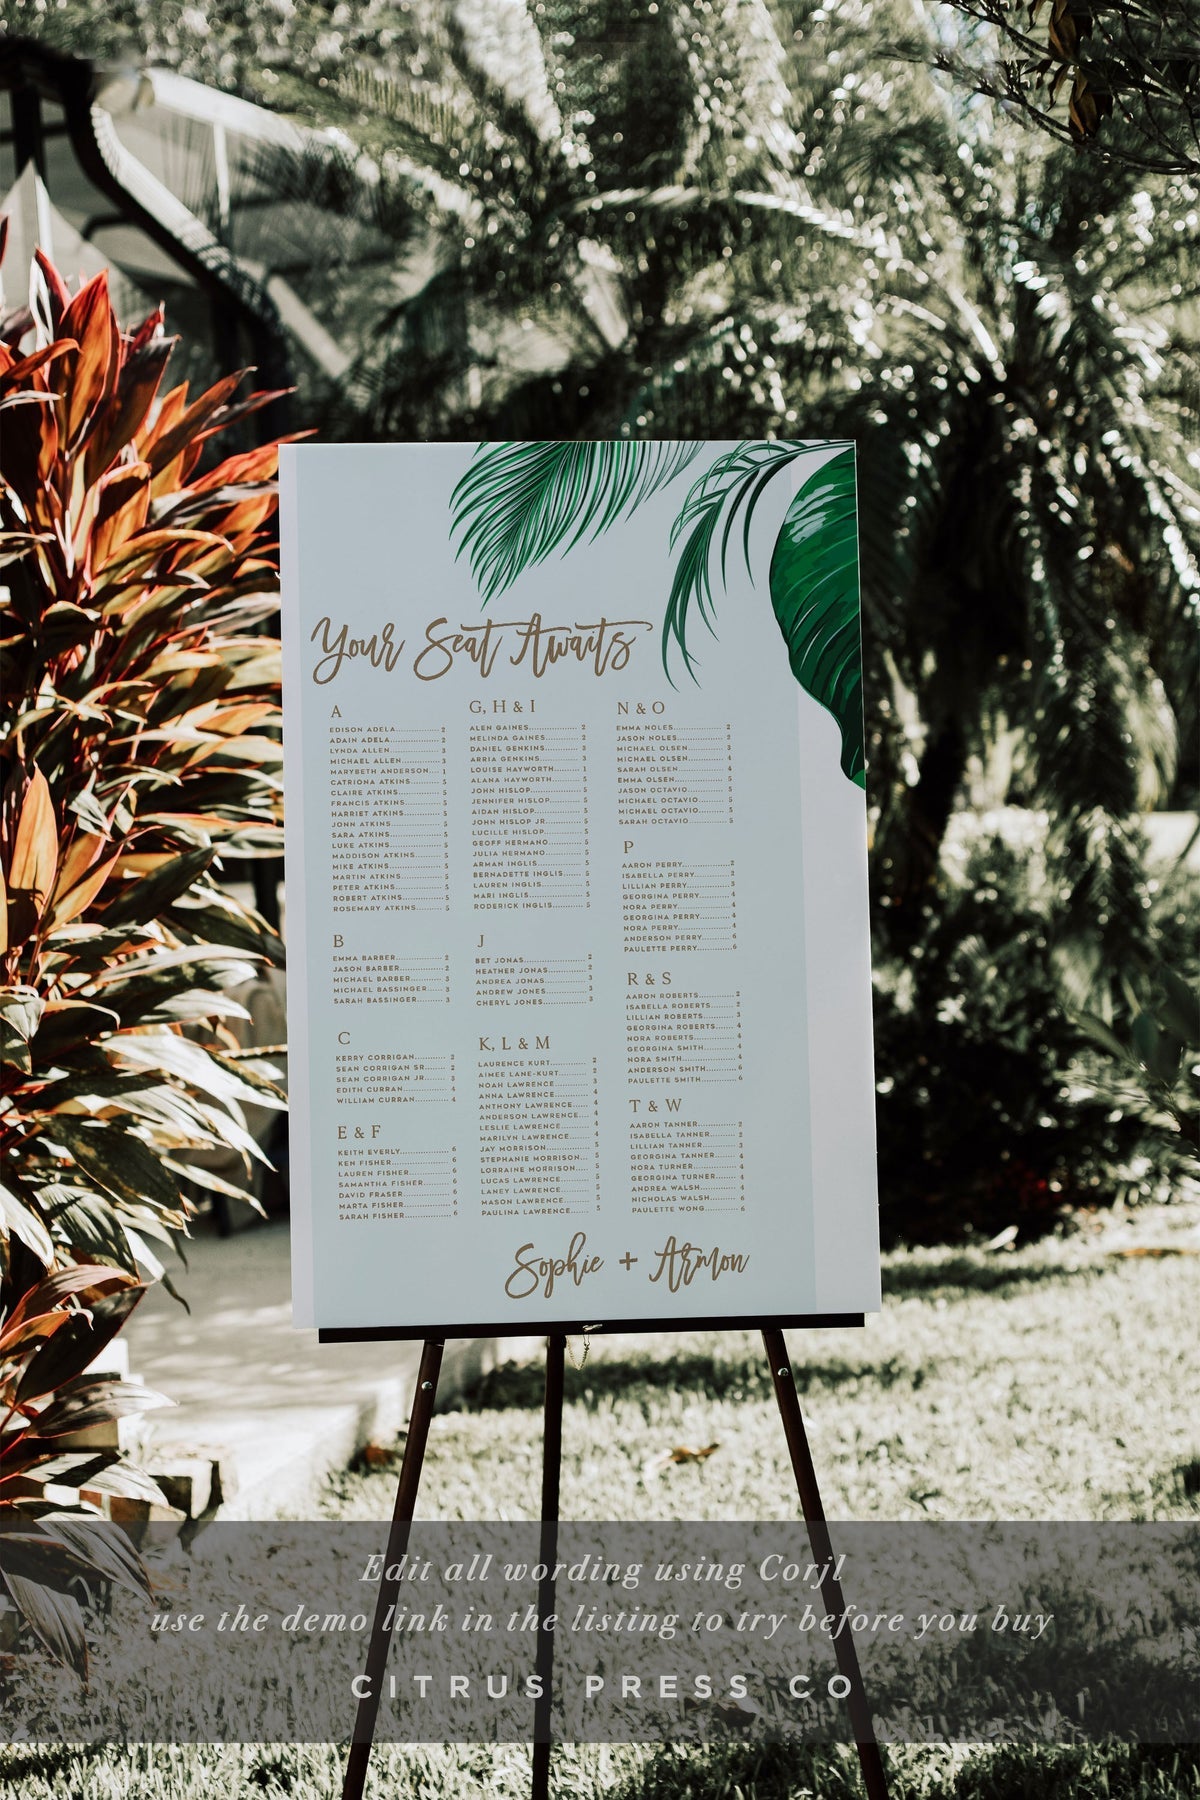 Your Seat Awaits
A
EDISON ADELA 2
ADAIN ADELA 2
LYNDA ALLEN 3
MICHAEL ALLEN 3
MARYBETH ANDERSON 1
CATRIONA ATKINS 5
CLAIRE ATKINS 5
FRANCIS ATKINS 5
HARRIET ATKINS 5
JONN ATKINS 5
SARA ATKINS 5
LUKE ATKINS 5
MADDISON ATKINS 5
MIKE ATKINS 5
MARTIN ATKINS 5
PETER ATKINS 5
ROBERT ATKINS 5
ROSEMARY ATKINS 5
B
EMMA BARBER 2
JASON BARBER 2
MICHAEL BARBER 3
MICHAEL BASSINGER 3
SARAH BASSINGER 3
C
KERRY CORRIGAN 2
SEAN CORRIGAN SR 2
SEAN CORRIGAN JR 3
EDITH CURRAN 4
WILLIAM CURRAN 4
E & F
KEITH EVERLY 6
KEN FISHER 6
LAUREN FISHER 6
SAMANTHA FISHER 6
DAVID FRASER 6
MARTA FISHER 6
SARAH FISHER 6
G, H & I
ALEN GAINES 2
MELINDA GAINES 2
DANIEL GENKINS 3
ARRIA GENKINS 3
LOUISE HAYWORTH 1
ALANA HAYWORTH 5
JOHN HISLOP 5
JENNIFER HISLOP 5
AIDAN HISLOP 5
JOHN HISLOP JR 5
LUCILLE HISLOP 5
GEOFF HERMANO 5
JULIA HERMANO 5
ARMAN INGLIS 5
BERNADETTE INGLIS 5
LAUREN INGLIS 5
MARI INGLIS 5
RODERICK INGLIS 5
J
BET JONAS 2
HEATHER JONAS 2
ANDREA JONAS 3
ANDREW JONES 3
CHERYL JONES 3
K, L & M
LAURENCE KURT 2
AIMEE LANE-KURT 2
NOAH LAWRENCE 3
ANNA LAWRENCE 4
ANTHONY LAWRENCE 4
ANDERSON LAWRENCE 4
LESLIE LAWRENCE 4
MARILYN LAWRENCE 4
JAY MORRISON 5
STEPHANIE MORRISON 5
LORRAINE MORRISON 5
LUCAS LAWRENCE 5
LANEY LAWRENCE 5
MASON LAWRENCE 5
PAULINA LAWRENCE 5
N & O
EMMA NOLES 2
JASON NOLES 2
MICHAEL OLSEN 3
MICHAEL OLSEN 4
SARAH OLSEN 4
EMMA OLSEN 5
JASON OCTAVIO 5
MICHAEL OCTAVIO 5
MICHAEL OCTAVIO 5
SARAH OCTAVIO 5
P
AARON PERRY 2
ISABELLA PERRY 2
LILLIAN PERRY 3
GEORGINA PERRY 4
NORA PERRY 4
GEORGINA PERRY 4
NORA PERRY 4
ANDERSON PERRY 6
PAULETTE PERRY 6
R & S
AARON ROBERTS 2
ISABELLA ROBERTS 2
LILLIAN ROBERTS 3
GEORGINA ROBERTS 4
NORA ROBERTS 4
GEORGINA SMITH 4
NORA SMITH 4
ANDERSON SMITH 6
PAULETTE SMITH 6
T & W
AARON TANNER 2
ISABELLA TANNER 2
LILLIAN TANNER 3
GEORGINA TANNER 4
NORA TURNER 4
GEORGINA TURNER 4
ANDREA WALSH 4
NICHOLAS WALSH 6
PAULETTE WONG 6
Sophie + Armon
Edit all wording using Corjl
use the demo link in the listing to try before you buy
CITRUS PRESS CO